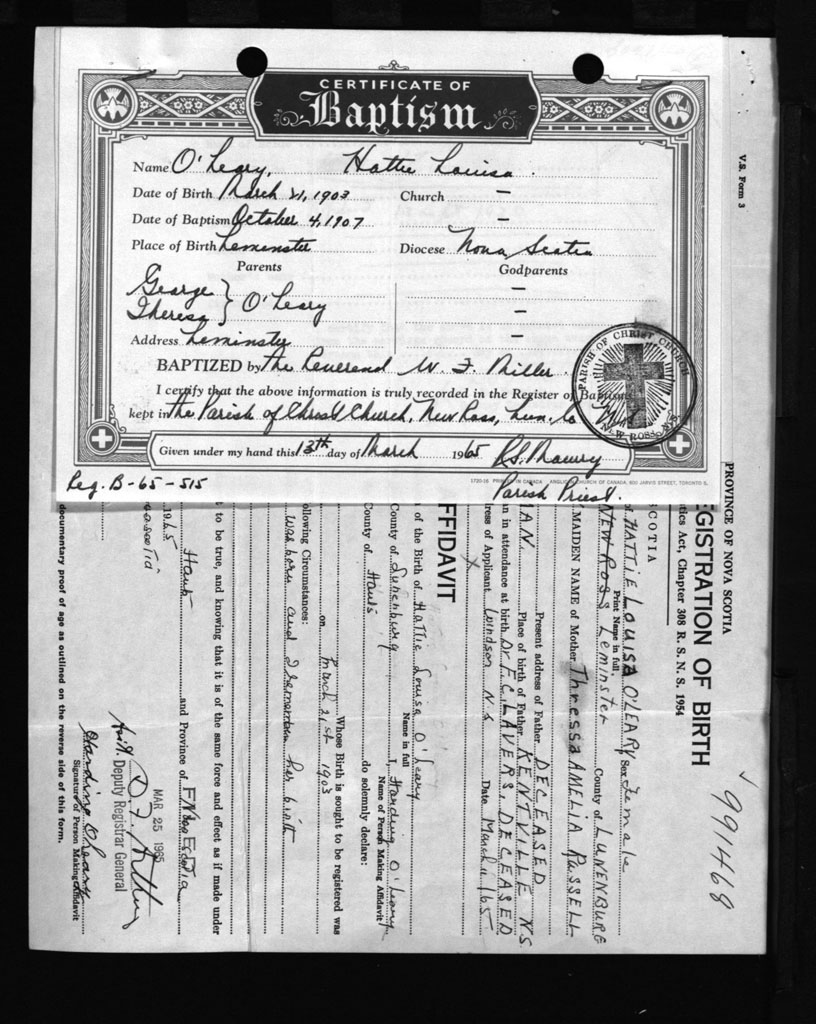 CERTIFICATE OF
Baptism
Name O'Leary, Hattie Louisa.
Date of Birth March 21, 1903 Church —
Date of Baptism October 4, 1907 —
Place of Birth Leminster Diocese Nova Scotia
Parents Godparents
George } —
Theresa } O'Leary —
Address Leminster —
BAPTIZED by The Reverend W. F. Miller
I certify that the above information is truly recorded in the Register of Baptisms
kept in The Parish of Christ Church, New Ross, Lun. Co
PARISH OF CHRIST CHURCH
NEW ROSS, N.S.
Given under my hand this 13th day of March 1965
Parish Priest.
Reg. B-65-515
ANGLICAN CHURCH OF CANADA, 600 JARVIS STREET, TORONTO 5.
V.S. Form 3
991468
PROVINCE OF NOVA SCOTIA
EGISTRATION OF BIRTH
tics Act, Chapter 308 R. S. N. S. 1954
SCOTIA
HATTIE LOUISA O'LEARY Sex Female
Print Name in full
NEW ROSS Leminster County of LUNENBURG
MAIDEN NAME of Mother Thressa AMELIA RUSSELL
Present address of Father DECEASED
IAN. Place of birth of Father KENTVILLE N.S.
an in attendance at birth Dr F.C. LAVERS, DECEASED
ress of Applicant Windson N.S Date March 11/65
FFIDAVIT
of the Birth of Hattie Louisa O'Leary
Name in full
County of Lunenburg I, Harding O'Leary
Name of Person Making Affidavit
County of Hants do solemnly declare:
Whose Birth is sought to be registered was
on March 21st 1903
ollowing Circumstances:
was born and I remember her birth
t to be true, and knowing that it is of the same force and effect as if made under
Hants and Province of
19 65
MAR 25 1965
Asst. Deputy Registrar General
Harding O'Leary
Signature of Person Making Affidavit
documentary proof of age as outlined on the reverse side of this form.